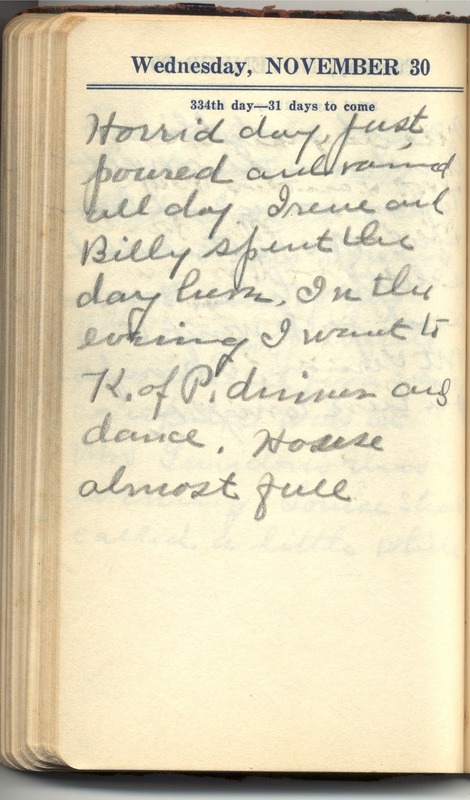 Wednesday, NOVEMBER 30
334th day—31 days to come
Horrid day, just
poured and rain'd
all day. Irene and
Billy spent the
day here. In the
evening I went to
K. of P. dinner and
dance. House
almost full